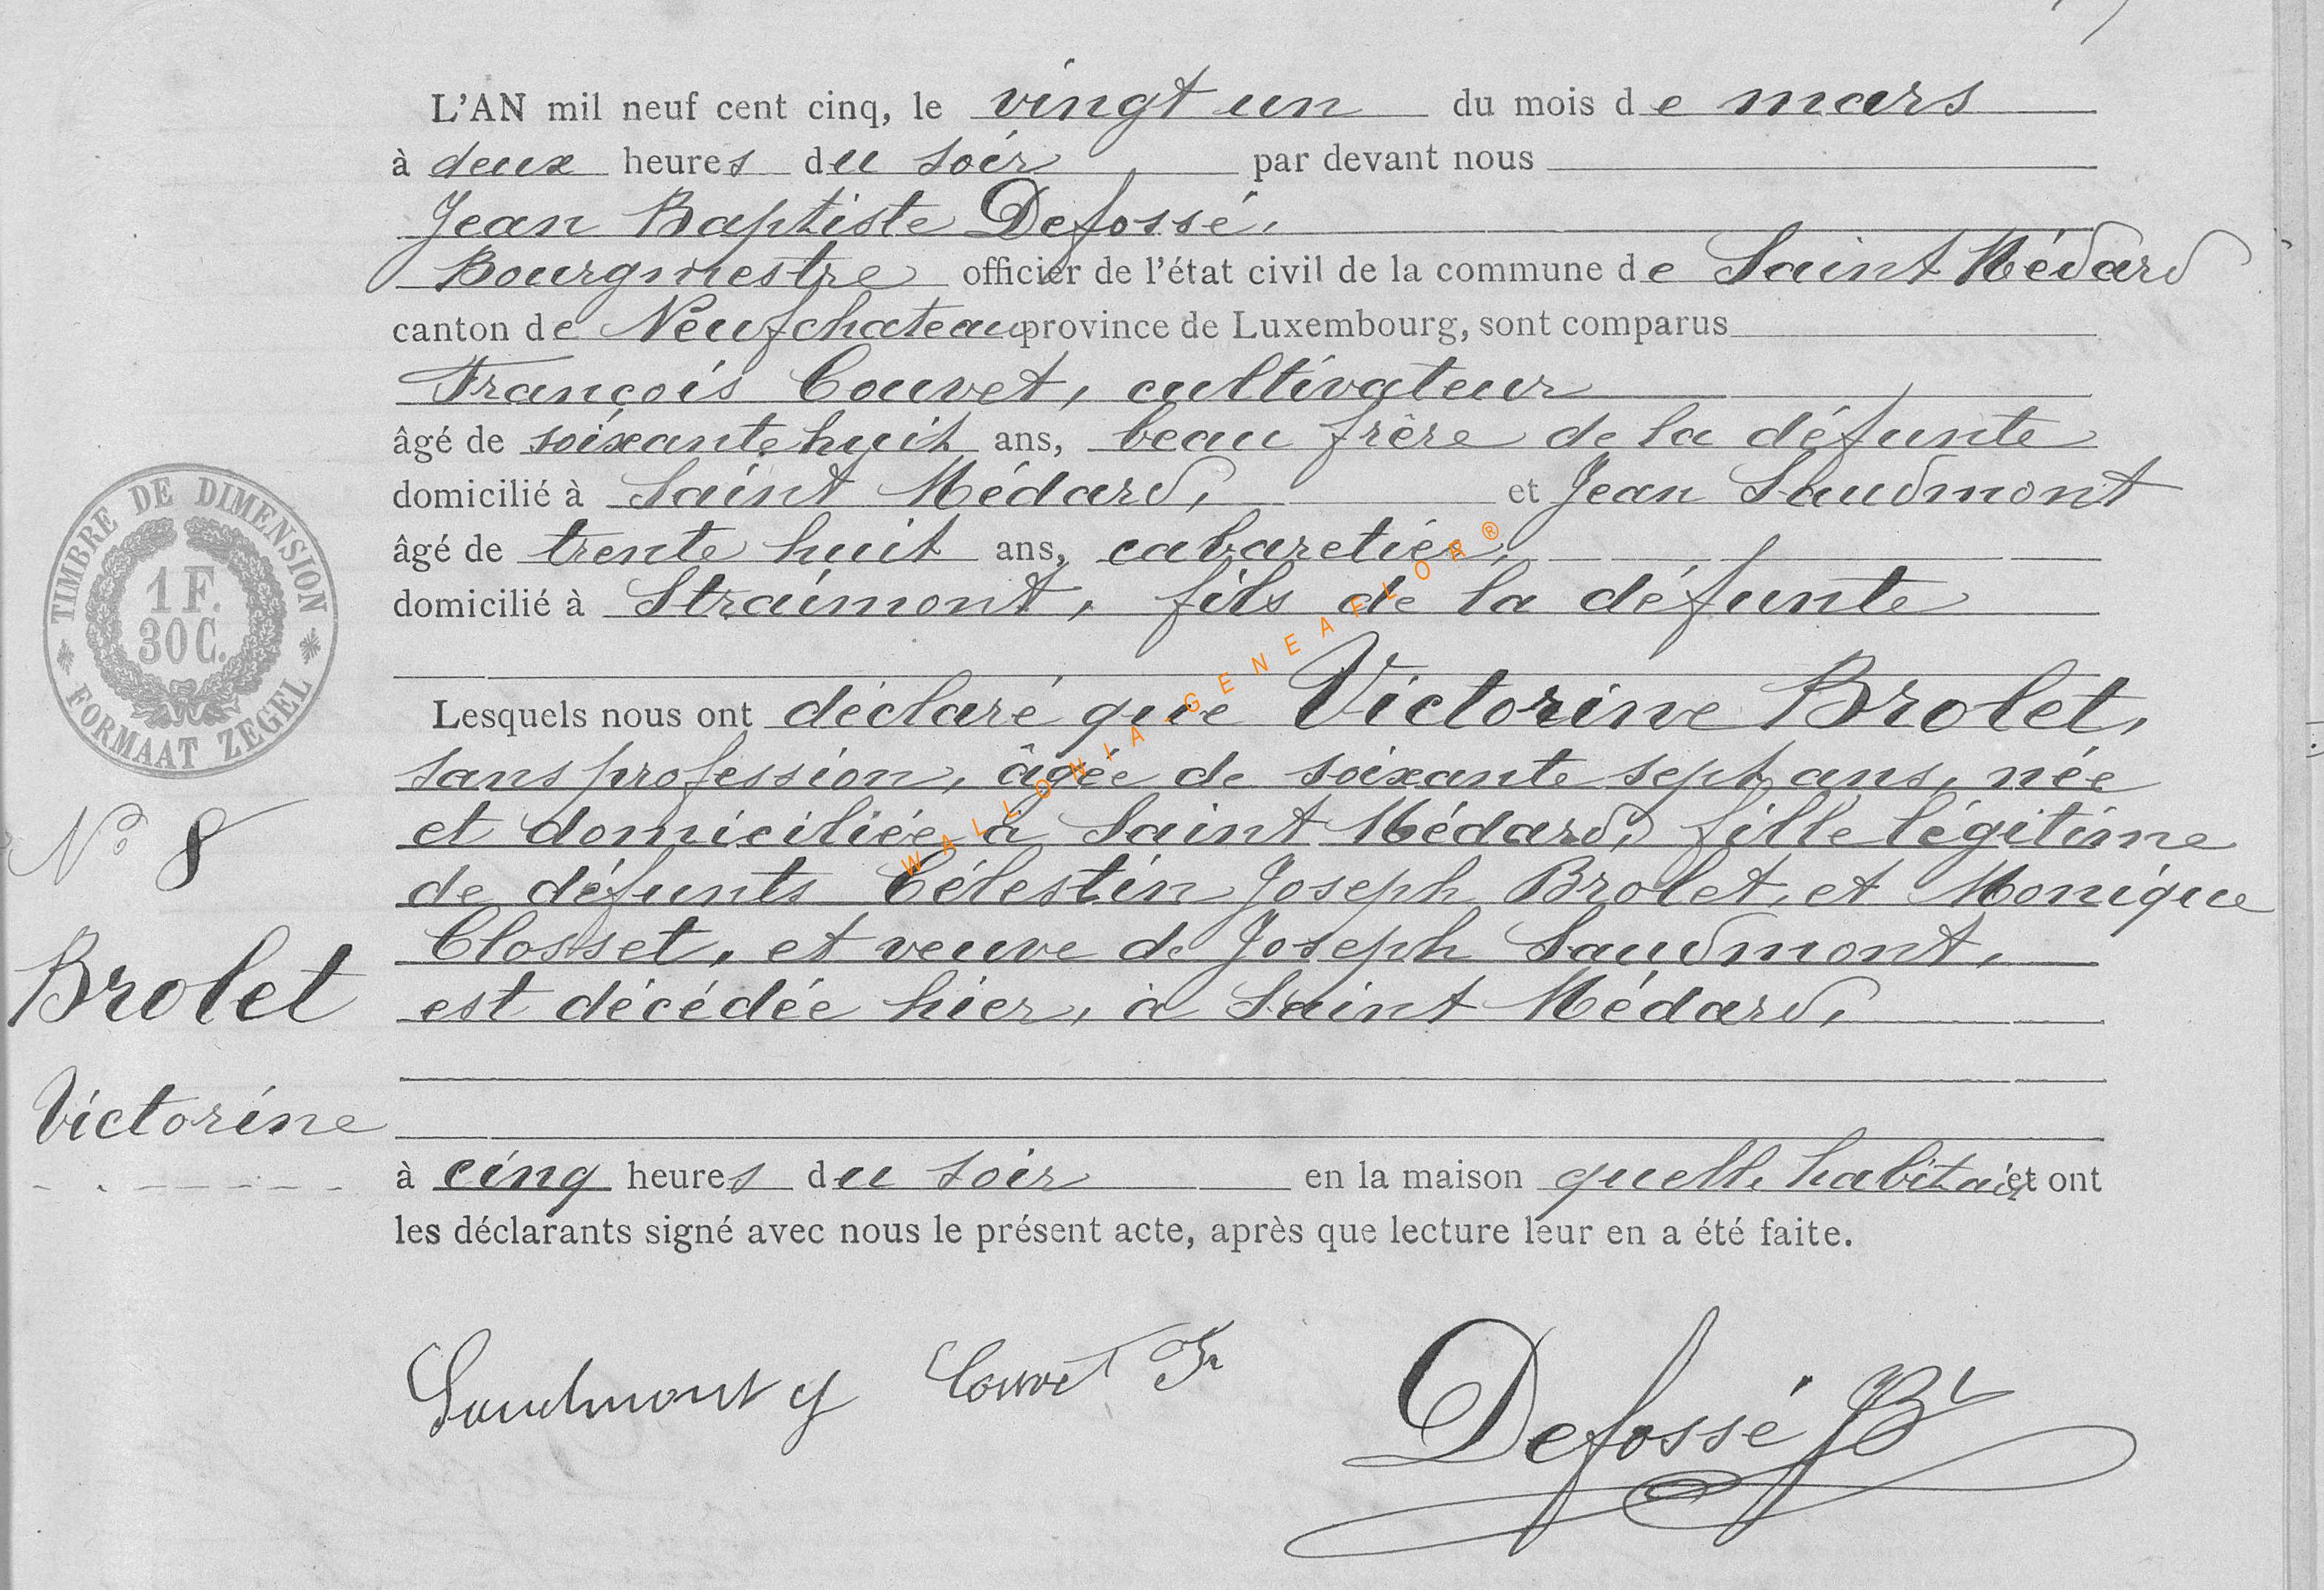 L'AN mil neuf cent cinq, le vingt un du mois de mars
à deux heures du soir par devant nous
Jean Baptiste Defossé,
Bourgmestre officier de l'état civil de la commune de Saint Médard
canton de Neufchateau province de Luxembourg, sont comparus
François Couvet, cultivateur
âgé de soixante huit ans, beau frère de la défunte
domicilié à Saint Médard, et Jean Saudmont
âgé de trente huit ans, cabaretier,
domicilié à Straimont, fils de la défunte
Lesquels nous ont déclaré que Victorine Brolet,
sans profession, âgée de soixante sept ans, née
et domiciliée à Saint Médard, fille légitime
de défunts Célestin Joseph Brolet, et Monique
Closset, et veuve de Joseph Saudmont,
est décédée hier, à Saint Médard,
à cinq heures du soir en la maison quelle habitait et ont
les déclarants signé avec nous le présent acte, après que lecture leur en a été faite.
TIMBRE DE DIMENSION
1 F.
30 C.
FORMAAT ZEGEL
N° 8
Brolet
Victorine
Saudmont J Couvet Fr
Defossé JB
WALLONIA-GENEAFLOR®